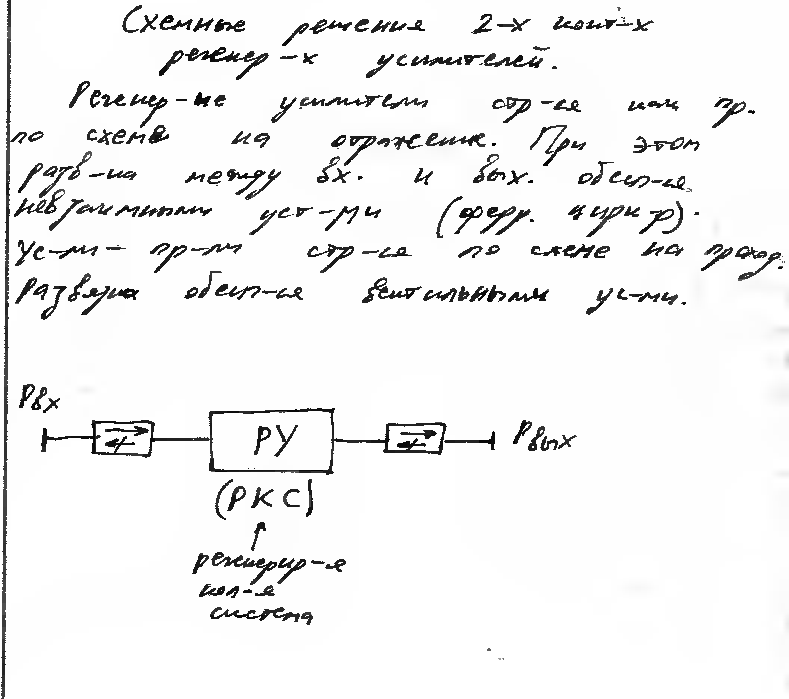 Схемные решения 2-х конт-х
регенер-х усилителей.
Регенер-ые усилители стр-ся как пр.
по схеме на отражение. При этом
разв-ка между вх. и вых. обесп-ся
невзаимными уст-ми (ферр. циркр).
Ус-ли- пр-ли стр-ся по схеме на проход.
Развязка обесп-ся вентильными ус-ми.
Рвх
РУ
Рвых
(РКС)
регенерир-я
кол-я
система